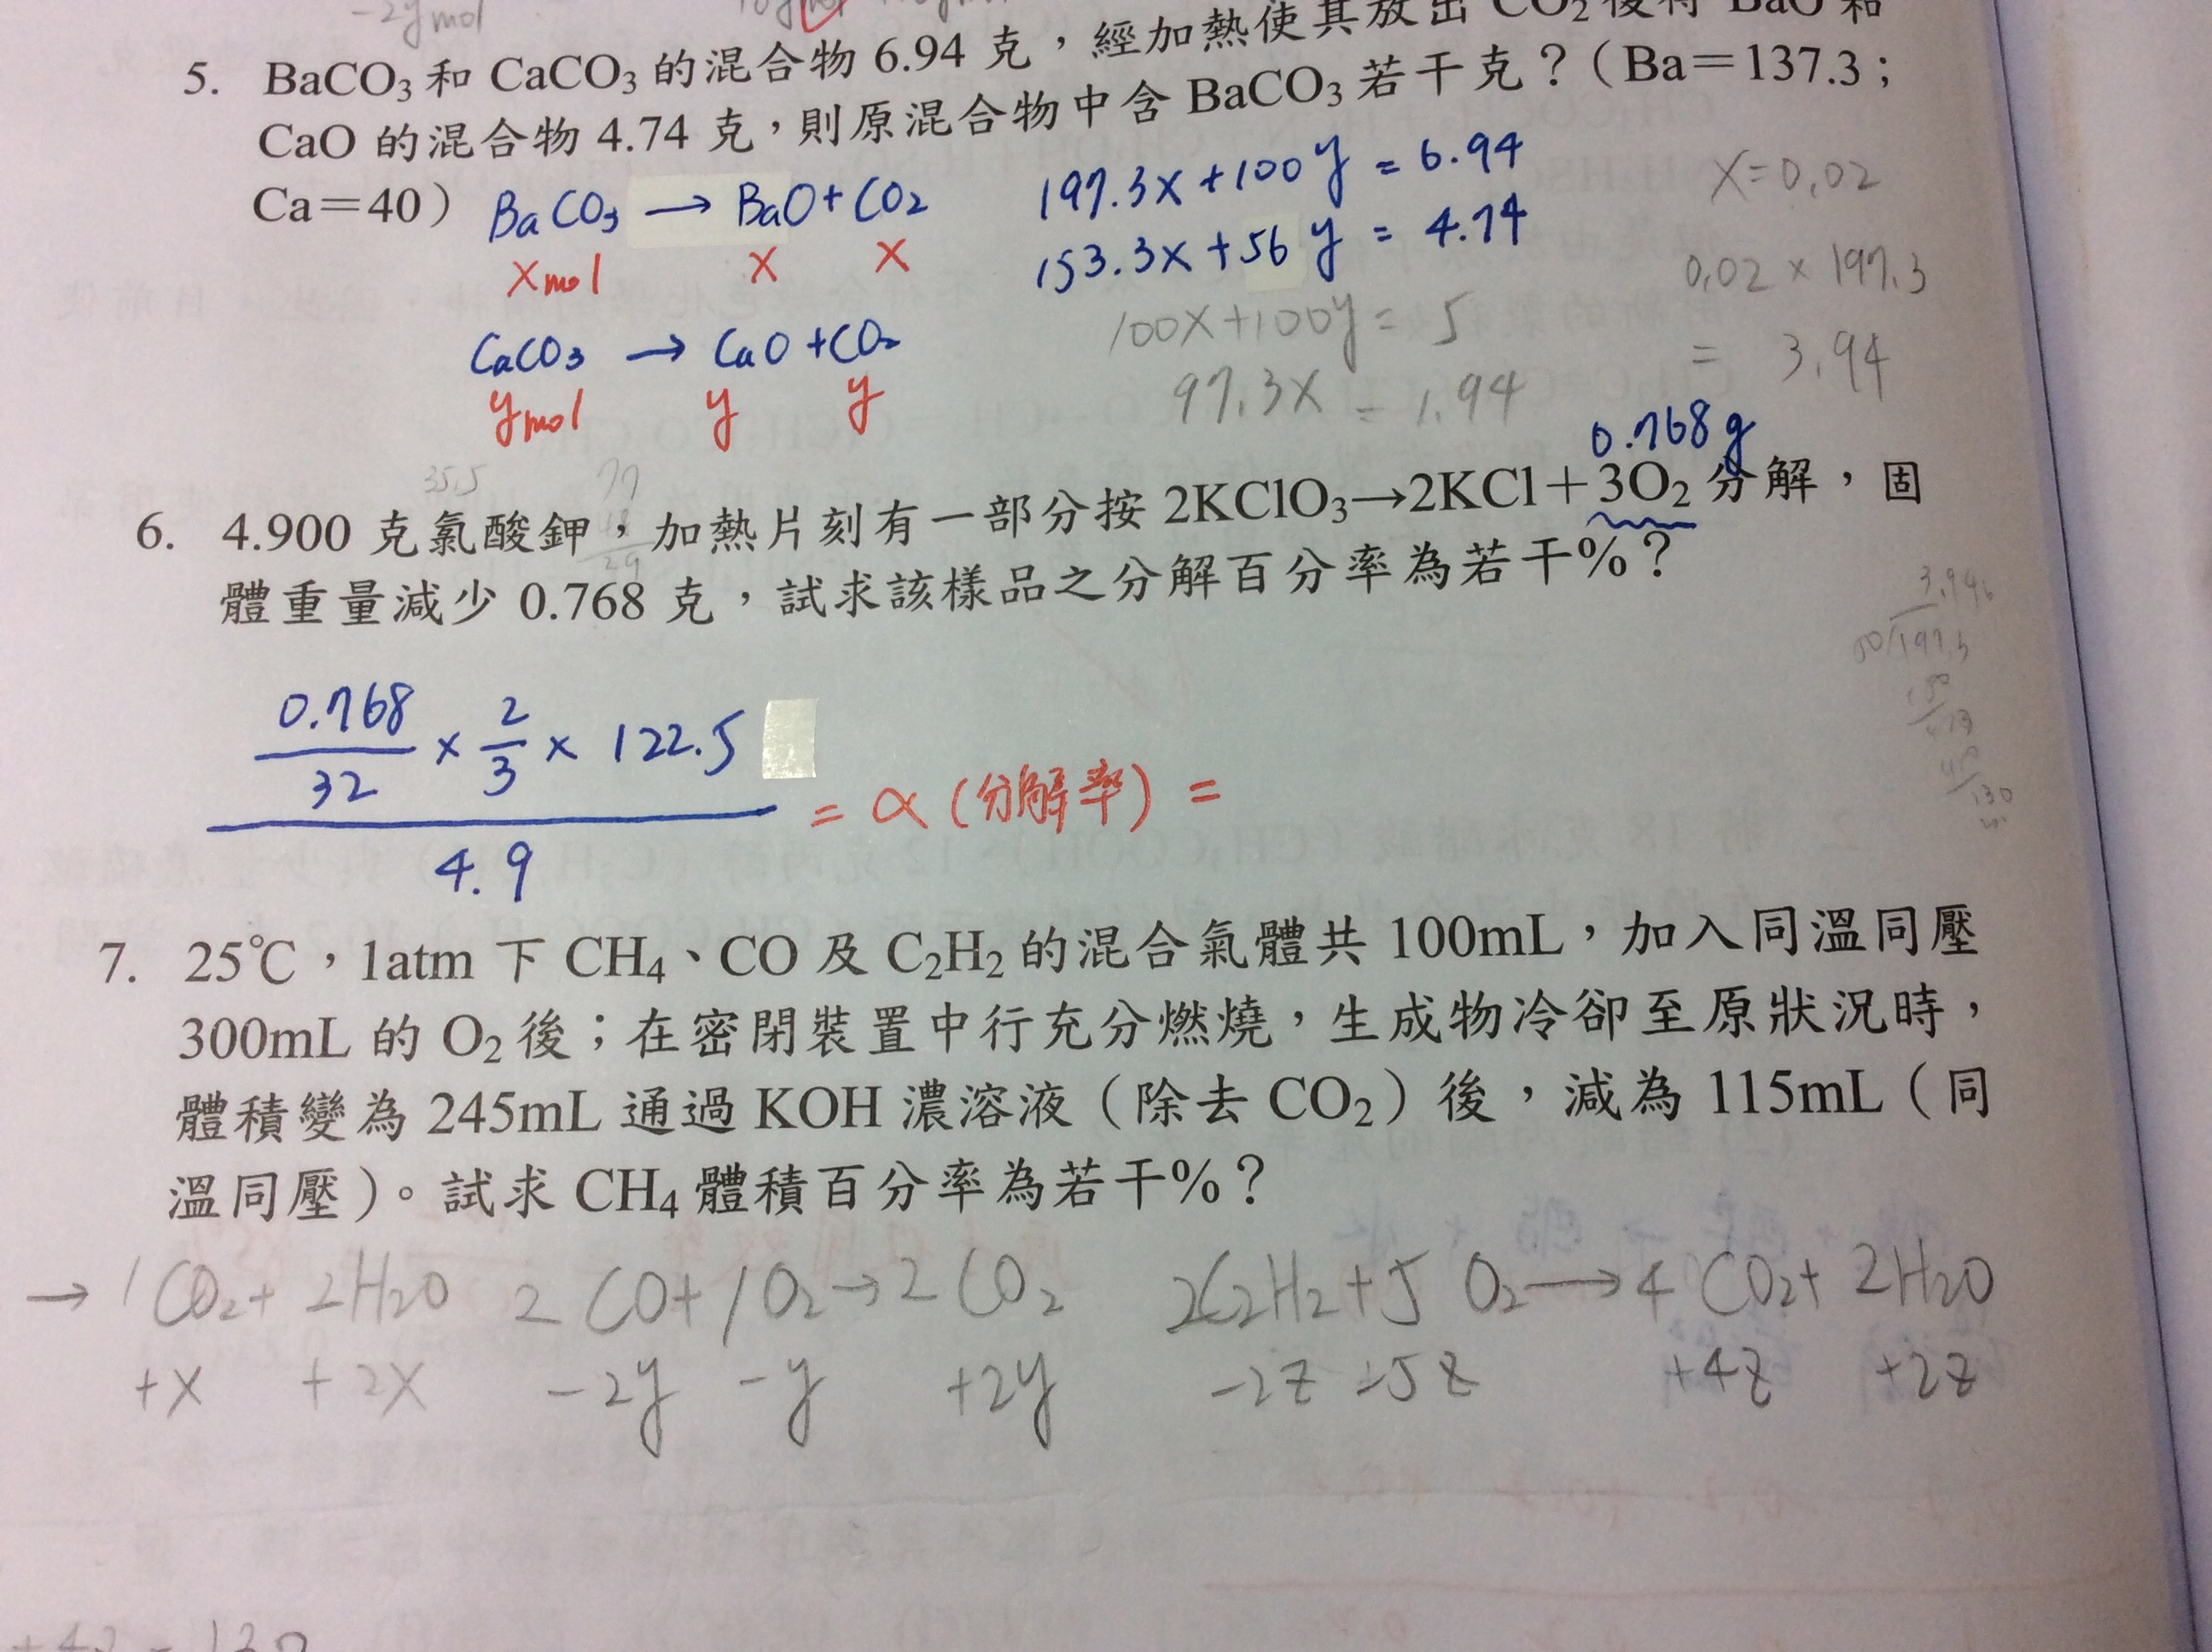 -2ymol
5. BaCO₃ 和 CaCO₃ 的混合物 6.94 克，經加熱使其放出 CO₂ 後得 BaO 和
CaO 的混合物 4.74 克，則原混合物中含 BaCO₃ 若干克？（Ba＝137.3；
Ca＝40）
BaCO₃ → BaO + CO₂
xmol x x
CaCO₃ → CaO + CO₂
ymol y y
197.3x + 100y = 6.94
153.3x + 56y = 4.74
100x + 100y = 5
97.3x = 1.94
x = 0.02
0.02 × 197.3
= 3.94
35.5
0.768g
6. 4.900 克氯酸鉀，加熱片刻有一部分按 2KClO₃→2KCl＋3O₂ 分解，固
體重量減少 0.768 克，試求該樣品之分解百分率為若干％？
0.768/32 × 2/3 × 122.5
4.9
= α (分解率) =
7. 25℃，1atm 下 CH₄、CO 及 C₂H₂ 的混合氣體共 100mL，加入同溫同壓
300mL 的 O₂ 後；在密閉裝置中行充分燃燒，生成物冷卻至原狀況時，
體積變為 245mL 通過 KOH 濃溶液（除去 CO₂）後，減為 115mL（同
溫同壓）。試求 CH₄ 體積百分率為若干％？
→ 1CO₂ + 2H₂O 2CO + 1O₂ → 2CO₂ 2C₂H₂ + 5O₂ → 4CO₂ + 2H₂O
+x +2x -2y -y +2y -2z -5z +4z +2z